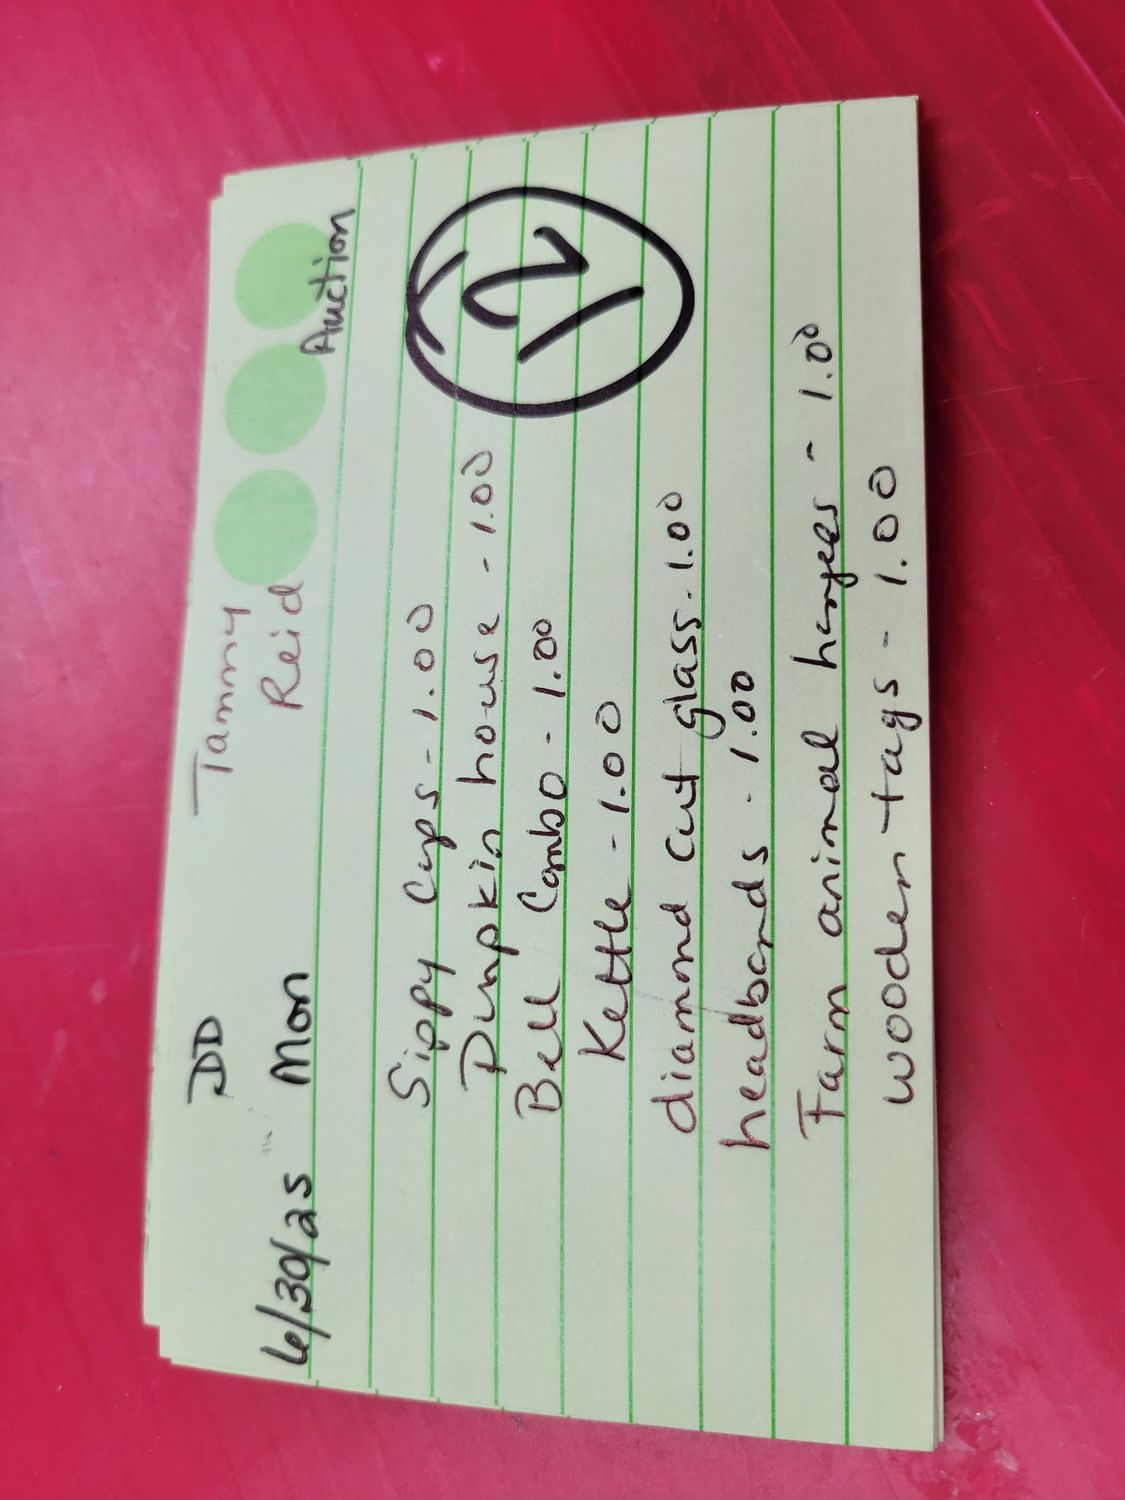 DD Tammy
6/30/25 Mon Reid Auction
Sippy Cups - 1.00
Pumpkin house - 1.00
Bell Combo - 1.00
Kettle - 1.00
diamond cut glass - 1.00
headbands - 1.00
Farm animal hangers - 1.00
wooden tags - 1.00